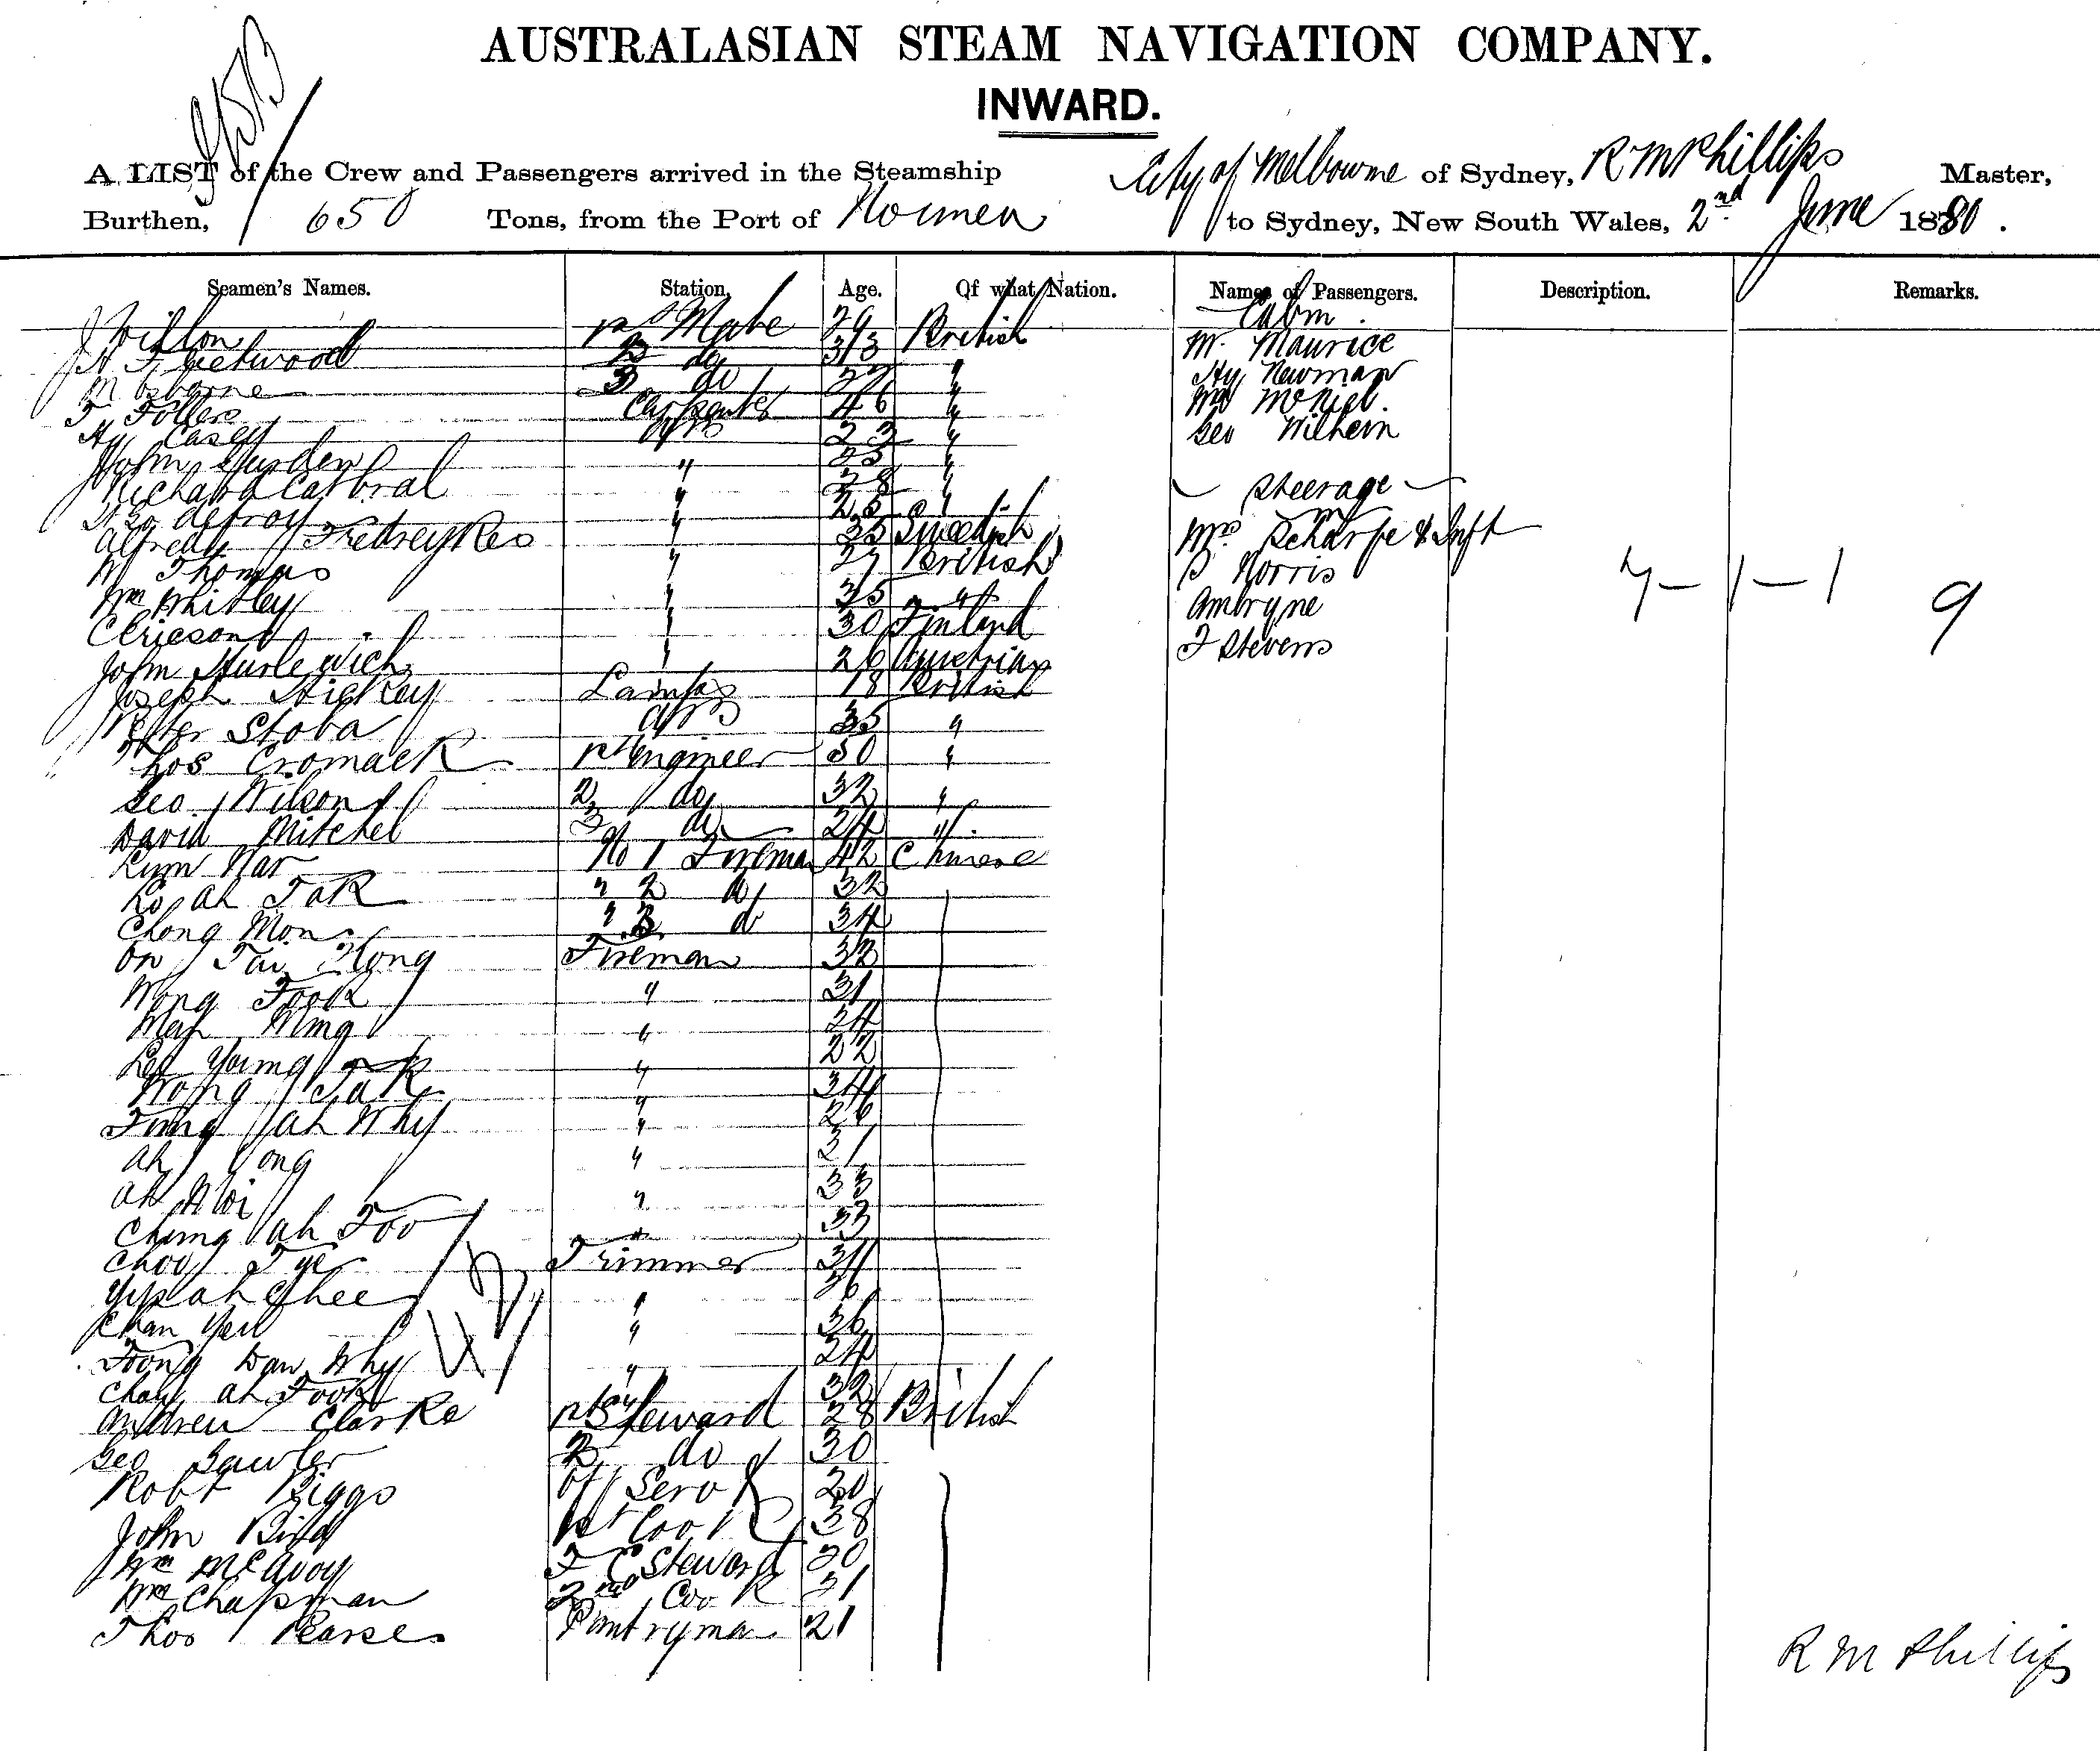 AUSTRALASIAN STEAM NAVIGATION COMPANY.
INWARD.
A LIST of the Crew and Passengers arrived in the Steamship City of Melbourne of Sydney, R M Phillips Master,
Burthen, 650 Tons, from the Port of to Sydney, New South Wales, 2nd June 1880.
Seamen's Names. Station. Age. Of what Nation. Names of Passengers. Description. Remarks.
Cabin
1st Mate 29 British
do 33 Mr. Maurice
M Osborne 3 do 27 " Hy Newman
Carpenter 46 "
Hy Casey AB 23 " Geo Wilhern
John 25 "
Richard 28 " Steerage
25 "
Alfred " 35 Swedish Mrs Scharfe & Inft
W Thomas " 27 British Norris
Wm Whitley " 35 " Ambryne
Ericson " 30 Finland F Stevens
7 - 1 - 1 9
John " 26 Austrian
Joseph Hickey Lamps 18 British
Peter AB 35 "
Thos Cromack 1st Engineer 50 "
Geo Wilson 2 do 32 "
David Mitchel 3 do 24 "
No 1 Fireman 42 Chinese
ah Tak " 2 do 32
Chong Mon " 3 do 34
On Tai Hong Fireman 32
Wong Fook " 31
Mah Wing " 24
Lee Young " 22
Wong Tak " 34
Fung ah Why " 26
ah Yong " 31
ah Moi " 33
Chung ah Foo " 33
Choy Tye Trimmer 31
Yip ah Ghee " 36
Chan Yew " 36
Foong Dan Why " 24
Choy ah Fook " 32
Andrew Clarke 1st Steward 28 British
Geo Lawler 2 do 30
Robt Biggs Off Serv 20
John Bird 1st Cook 38
Wm McAvoy F C Steward 30
Wm Chapman 2nd Cook 31
Thos Pearse Pantryman 21
R M Phillips